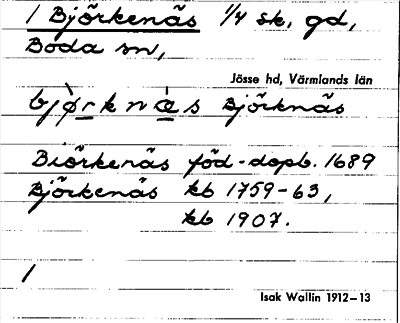 1 Björkenäs 1/4 sk. gd,
Boda sn,
Jösse hd, Värmlands län
bjø̀rknæ̀s Björknäs
Biörkenäs föd-dopb. 1689
Björkenäs kb 1759-63,
kb 1907.
1
Isak Wallin 1912-13